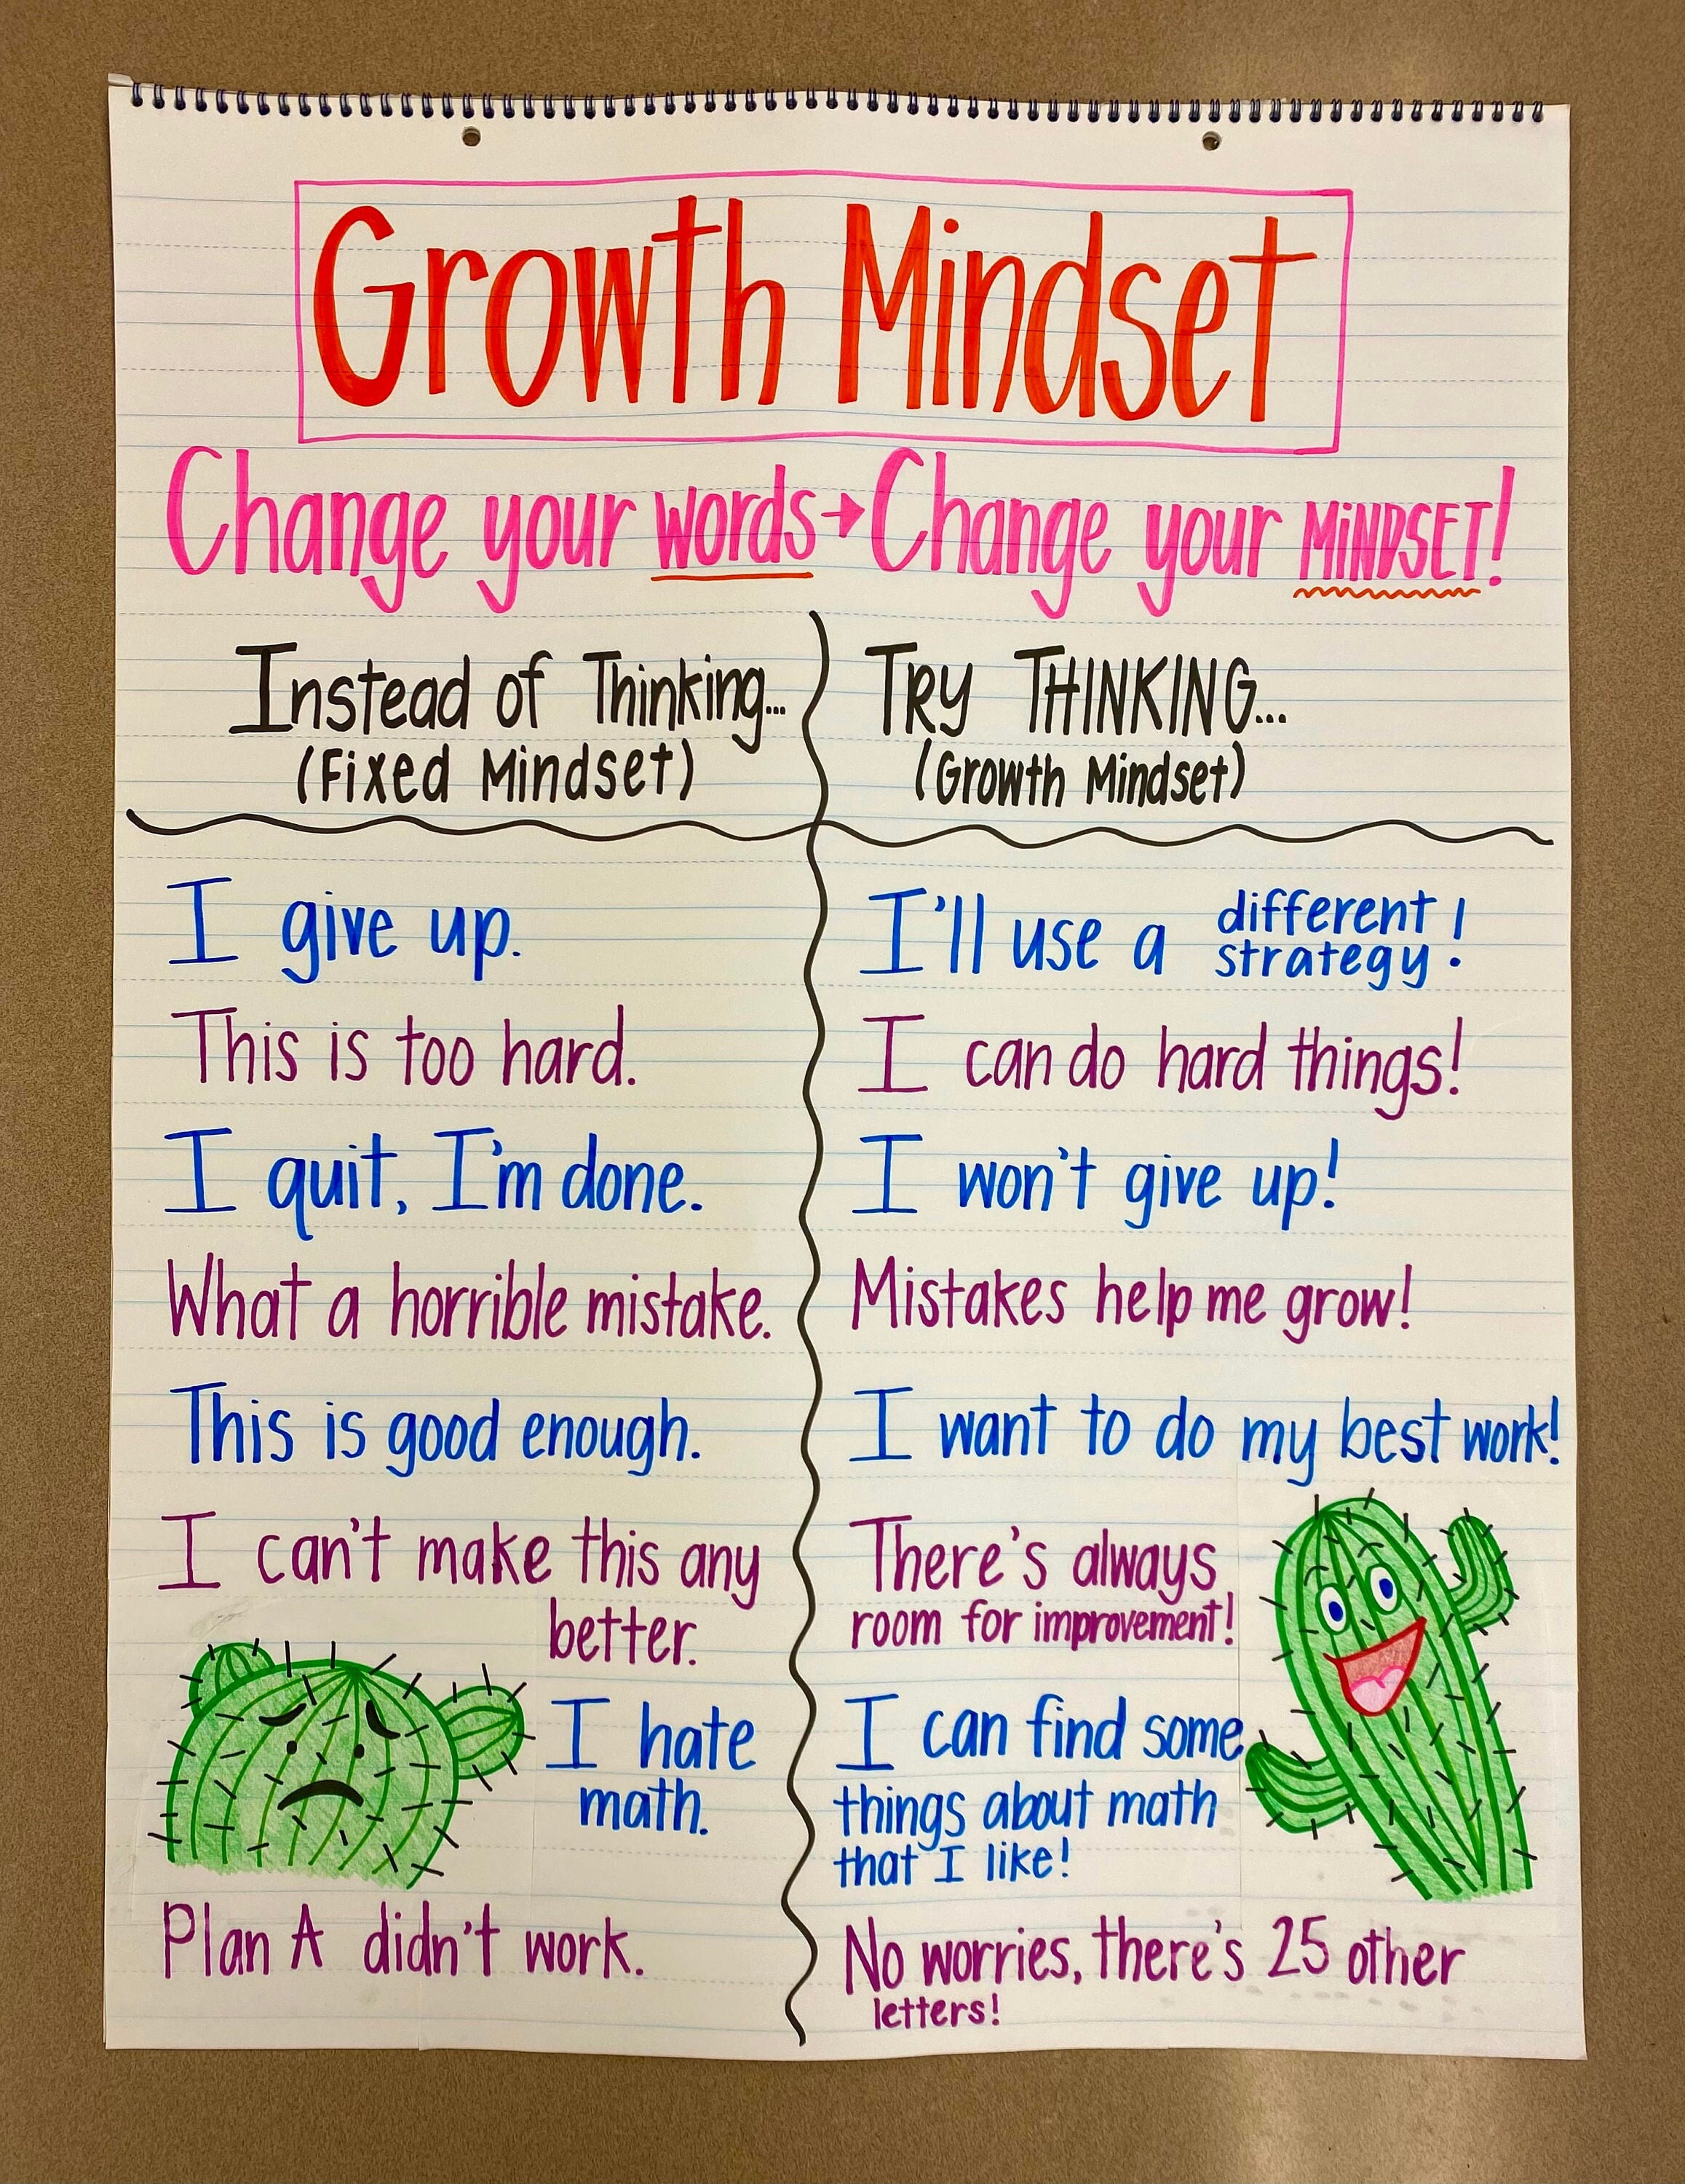 Growth Mindset
Change your words → Change your MiNDSET!
Instead of Thinking...
(Fixed Mindset)
TRY THINKING...
(Growth Mindset)
I give up.
I'll use a different
strategy!
This is too hard.
I can do hard things!
I quit, I'm done.
I won't give up!
What a horrible mistake.
Mistakes help me grow!
This is good enough.
I want to do my best work!
I can't make this any
better.
There's always
room for improvement!
I hate
math.
I can find some
things about math
that I like!
Plan A didn't work.
No worries, there's 25 other
letters!